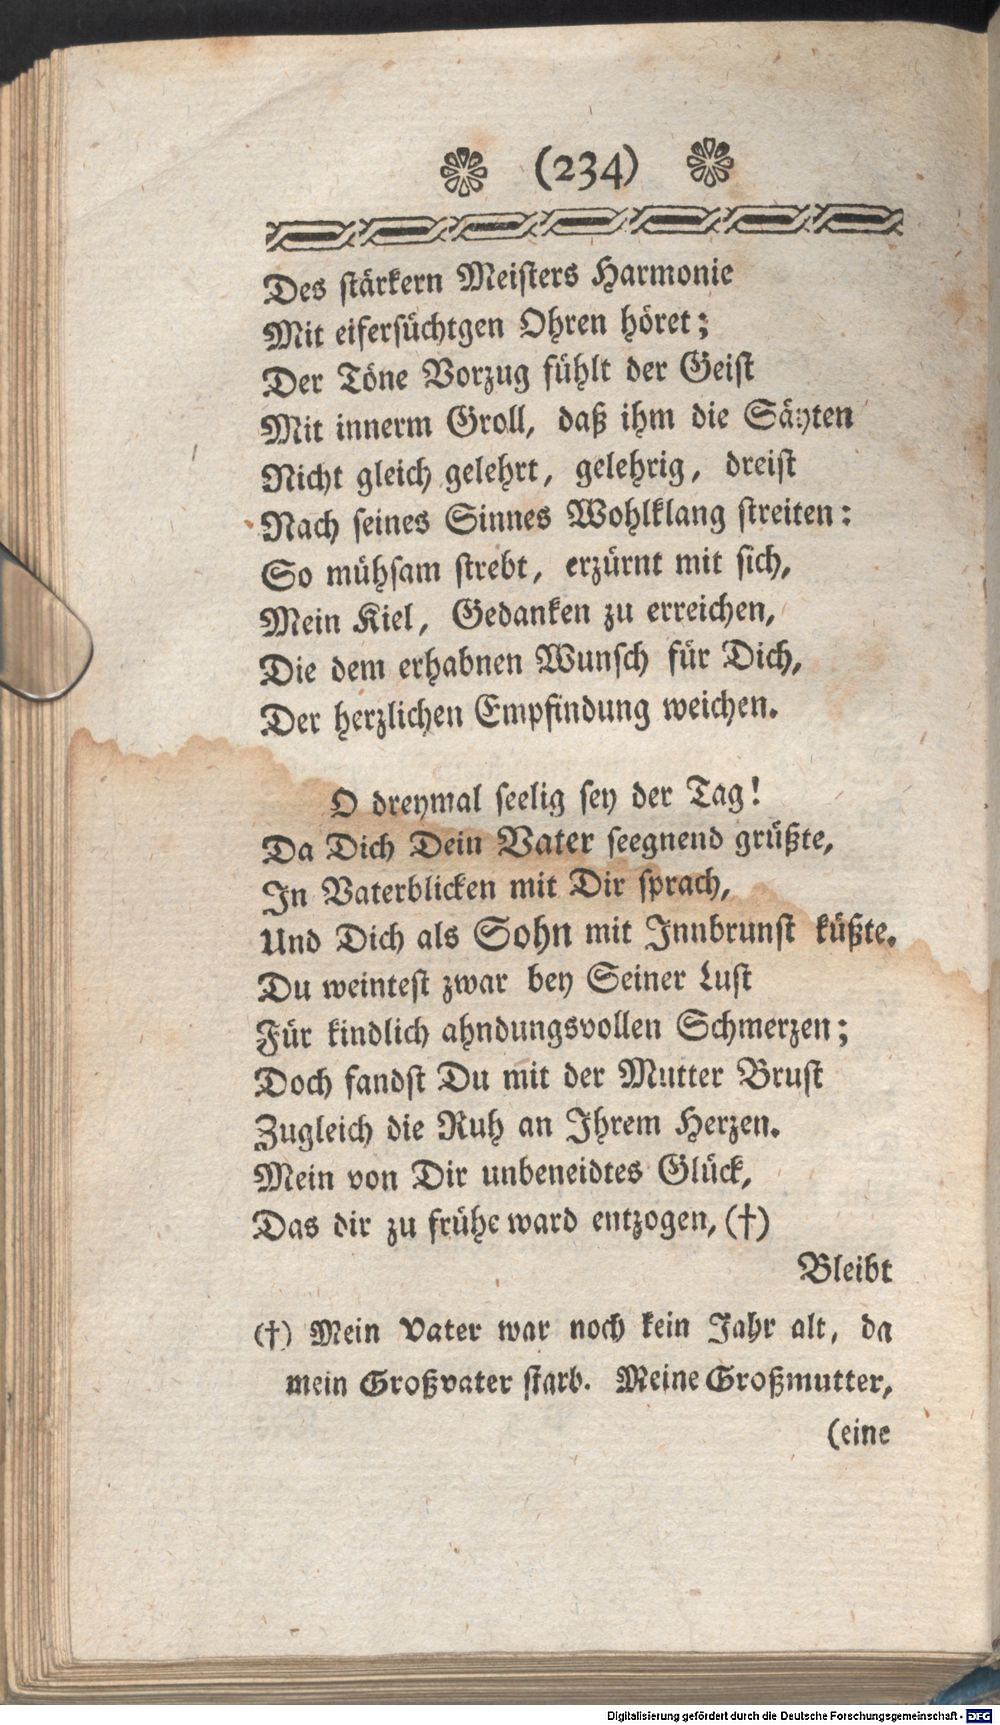 (234)
Des stärkern Meisters Harmonie
Mit eifersüchtgen Ohren höret;
Der Töne Vorzug fühlt der Geist
Mit innerm Groll, daß ihm die Säyten
Nicht gleich gelehrt, gelehrig, dreist
Nach seines Sinnes Wohlklang streiten:
So mühsam strebt, erzürnt mit sich,
Mein Kiel, Gedanken zu erreichen,
Die dem erhabnen Wunsch für Dich,
Der herzlichen Empfindung weichen.
O dreymal seelig sey der Tag!
Da Dich Dein Vater seegnend grüßte,
In Vaterblicken mit Dir sprach,
Und Dich als Sohn mit Innbrunst küßte.
Du weintest zwar bey Seiner Lust
Für kindlich ahndungsvollen Schmerzen;
Doch fandst Du mit der Mutter Brust
Zugleich die Ruh an Ihrem Herzen.
Mein von Dir unbeneidtes Glück,
Das dir zu frühe ward entzogen, (†)
Bleibt
(†) Mein Vater war noch kein Jahr alt, da
mein Großvater starb. Meine Großmutter,
(eine
Digitalisierung gefördert durch die Deutsche Forschungsgemeinschaft - DFG